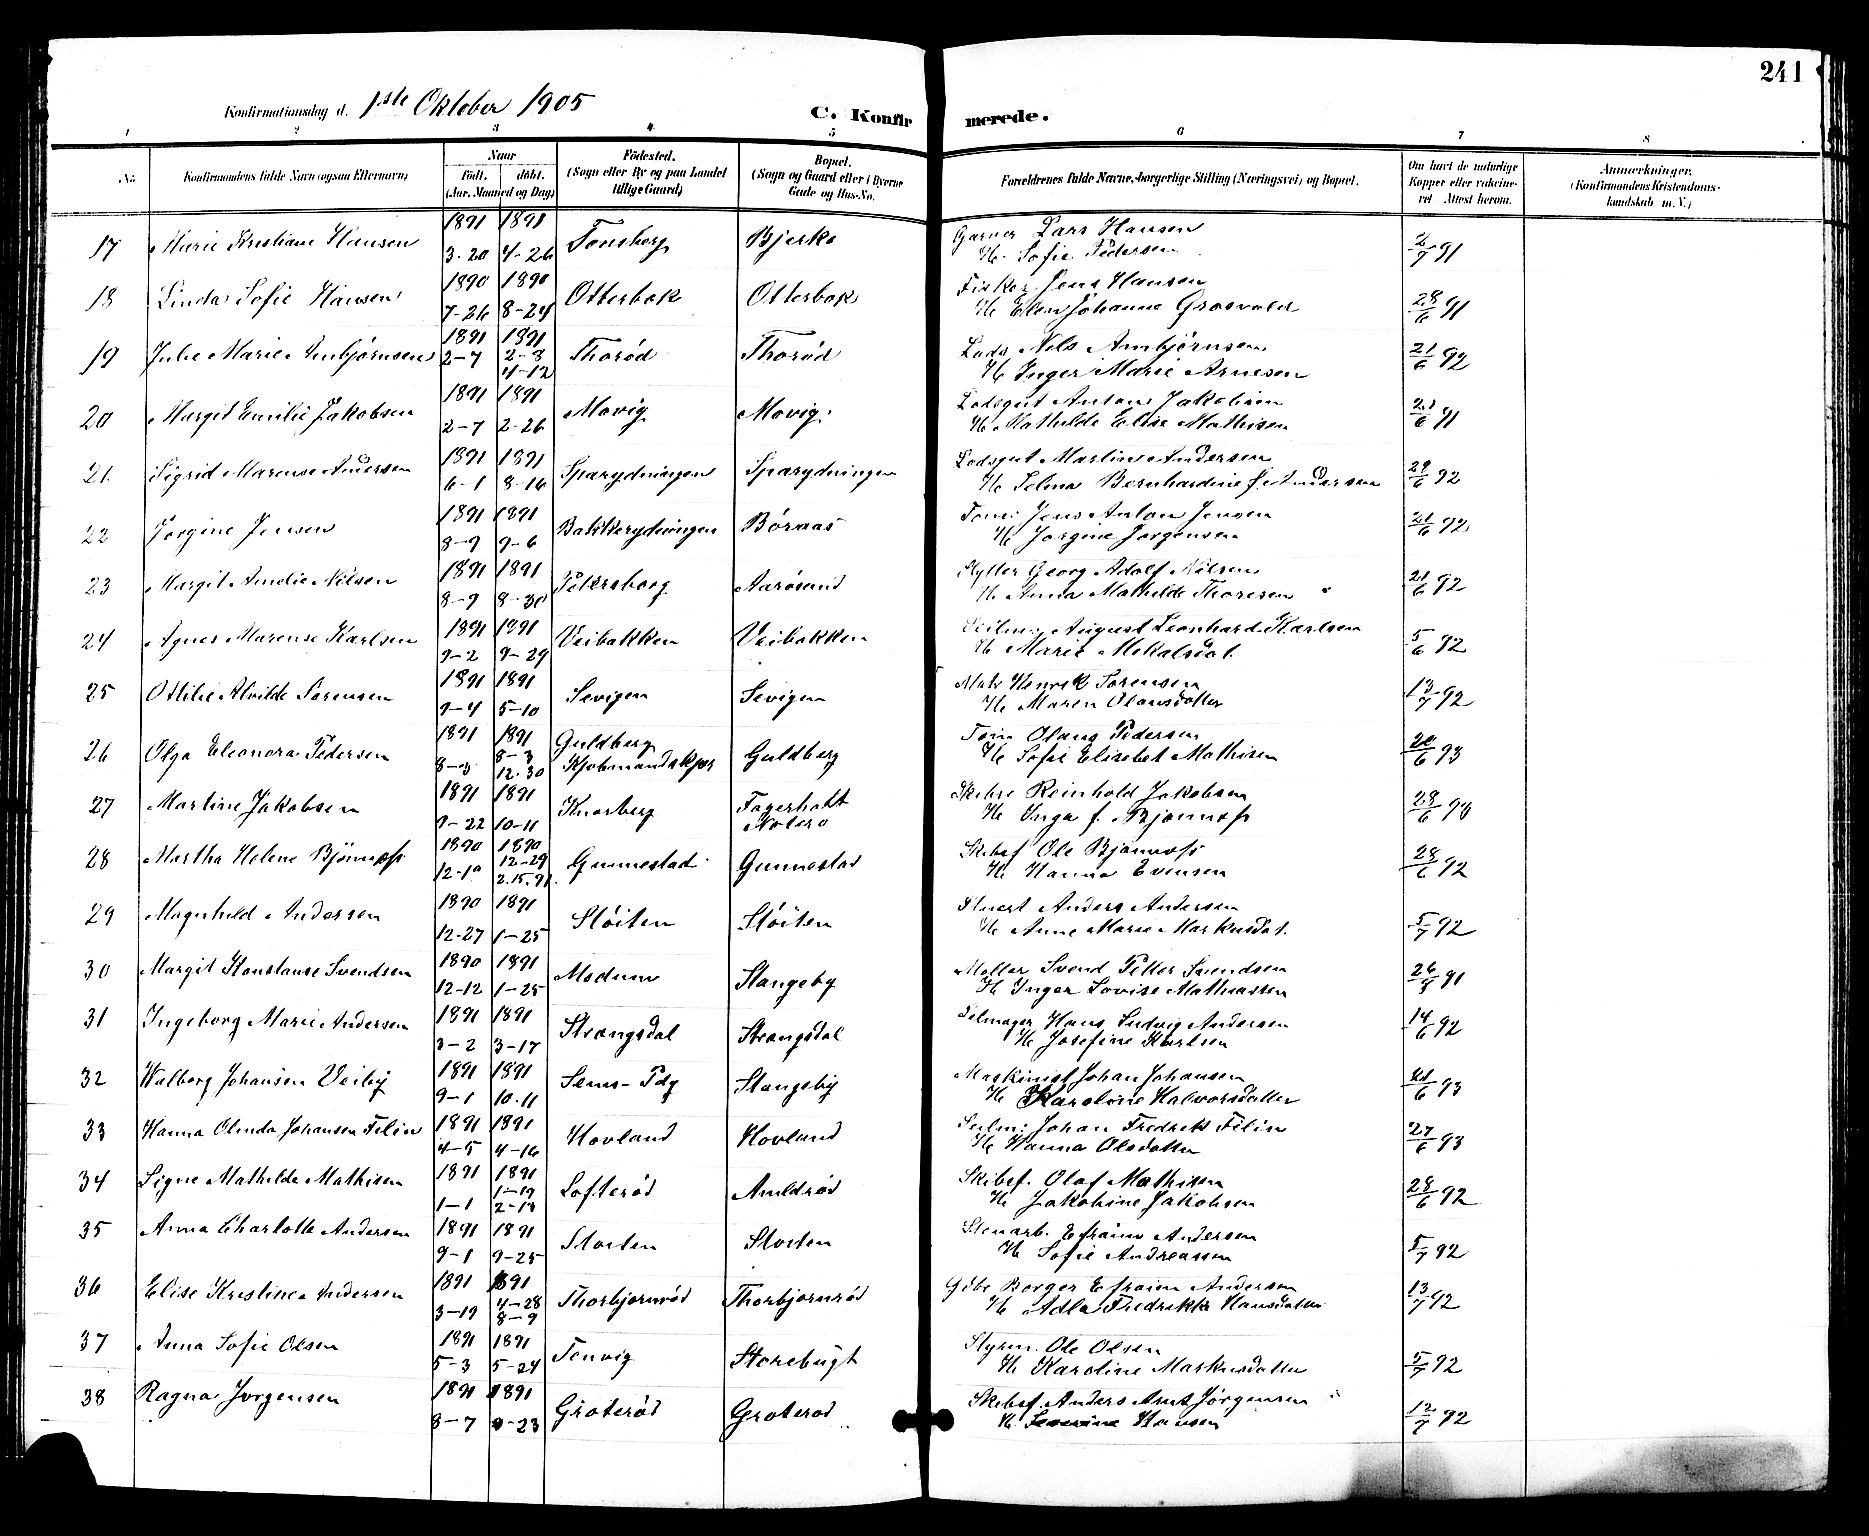 241
Konfirmationsdag d. 1ste Oktober 1905
C. Konfirmerede.
1 2 3 4 5 6 7 8
No. Konfirmandens fulde Navn (ogsaa Efternavn) Naar Født. døbt. (Aar, Maaned og Dag) Fødested. (Sogn eller By og paa Landet tillige Gaard) Bopæl. (Sogn og Gaard eller i Byerne Gade og Hus-No. Forældrenes fulde Navne, borgerlige Stilling (Næringsvei) og Bopæl. Om havt de naturlige Kopper eller vakcineret Attest herom. Anmærkninger. (Konfirmandens Kristendomskundskab m. V.)
17 Marie Kristiane Hansen 1891 3-20 1891 4-26 Tønsberg Bjerkø Garver Lars Hansen
H. Sofie Pedersen 2/7 91
18 Linda Sofie Hansen 1890 7-26 1890 8-24 Otterbæk Otterbæk Fisker Jens Hansen
H. Elen Johanne Grosvold 28/6 91
19 Julie Marie Anbjørnsen 1891 2-7 1891 2-8 4-12 Thorød Thorød Lods Nils Anbjørnsen
H. Inger Marie Arnesen 21/6 92
20 Margit Emilie Jakobsen 1891 2-7 1891 2-26 Movig Movig Lodsgut Anton Jakobsen
H. Mathilde Elise Mathisen 21/6 91
21 Sigrid Marense Andersen 1891 6-1 1891 8-16 Sparydningen Sparydningen Lodsgut Martin Andersen
H. Selma Bernhardine f. Andersen 28/6 92
22 Jorgine Jensen 1891 8-9 1891 9-6 Bakkerydningen Børnæs Tøm: Jens Anton Jensen
H. Jorgine Jørgensen 21/6 92
23 Margit Amdie Nilsen 1891 8-9 1891 8-30 Petersborg Aarøsund Flytter Georg Adolf Nilsen
H. Anna Mathilde Thoresen 21/6 92
24 Agnes Marense Karlsen 1891 9-2 1891 9-29 Veibakken Veibakken Seilm: August Leonhard Karlsen
H. Marie Mikalsdat. 5/6 92
25 Ottilie Alvilde Sørensen 1891 9-4 1891 5-10 Sevigen Sevigen Matr Henrik Sørensen
H. Maren Olausdatter 13/7 92
26 Olga Eleonora Pedersen 1891 8-3 1891 8-3 12-30 Guldberg Kjøbmandskjær Guldberg Tøm Olaus Pedersen
H. Sofie Elisebet Mathisen 20/6 93
27 Martine Jakobsen 1891 9-22 1891 10-11 Knarberg Fagerholt Nøterø Skibsf Reinhold Jakobsen
H. Inga f. Bjønnæss 28/6 93
28 Martha Helene Bjønnæss 1890 12-19 1890 12-29 2.15.91 Gunnestad Gunnestad Skibsf Ole Bjønnæss
H. Hanna Evensen 28/6 92
29 Magnhild Andersen 1890 12-27 1891 1-25 Støiten Støiten Stuert Anders Andersen
H. Anne Marie Markusdat. 5/7 92
30 Margit Konstanse Svendsen 1890 12-12 1891 1-25 Modum Stangeby Møller Svend Petter Svendsen
H. Inger Lovise Mathiassen 26/9 91
31 Ingeborg Marie Andersen 1891 3-2 1891 3-17 Strængsdal Strængsdal Seilmager Hans Ludvig Andersen
H. Josefine Karlsen 14/6 92
32 Walborg Johansen Veiby 1891 9-1 1891 10-11 Sems-Pdg Stangeby Maskinist Johan Johansen
H. Karoline Halvorsdatter 21/6 93
33 Hanna Olinda Johansen Felin 1891 4-5 1891 4-16 Hovland Hovland Seilm: Johan Fredrik Felin
H. Hanna Olsdatter 27/6 93
34 Signe Mathilde Mathisen 1891 1-1 1891 1-19 2-19 Lofterød Amldrød Skibsf. Olaf Mathisen
H. Jakobine Jakobsen 28/6 92
35 Anna Charlotte Andersen 1891 9-1 1891 9-25 Storten Storten Stenarb. Efraim Andersen
H. Sofie Andreassen 5/7 92
36 Elise Kristine Andersen 1891 3-19 1891 4-28 8-9 Thorbjørnrød Thorbjørnrød Gdbr Borger Efraim Andersen
H. Adla Fredrikke Hansdatter 13/7 92
37 Anna Sofie Olsen 1891 5-3 1891 5-24 Tenvig Storebugt Styrm. Ole Olsen
H. Karoline Markusdatter 5/7 92
38 Ragna Jørgensen 1891 8-7 1891 9-23 Groterød Groterød Skibsf Anders Amt Jørgensen
H. Severine Hansen 12/7 92